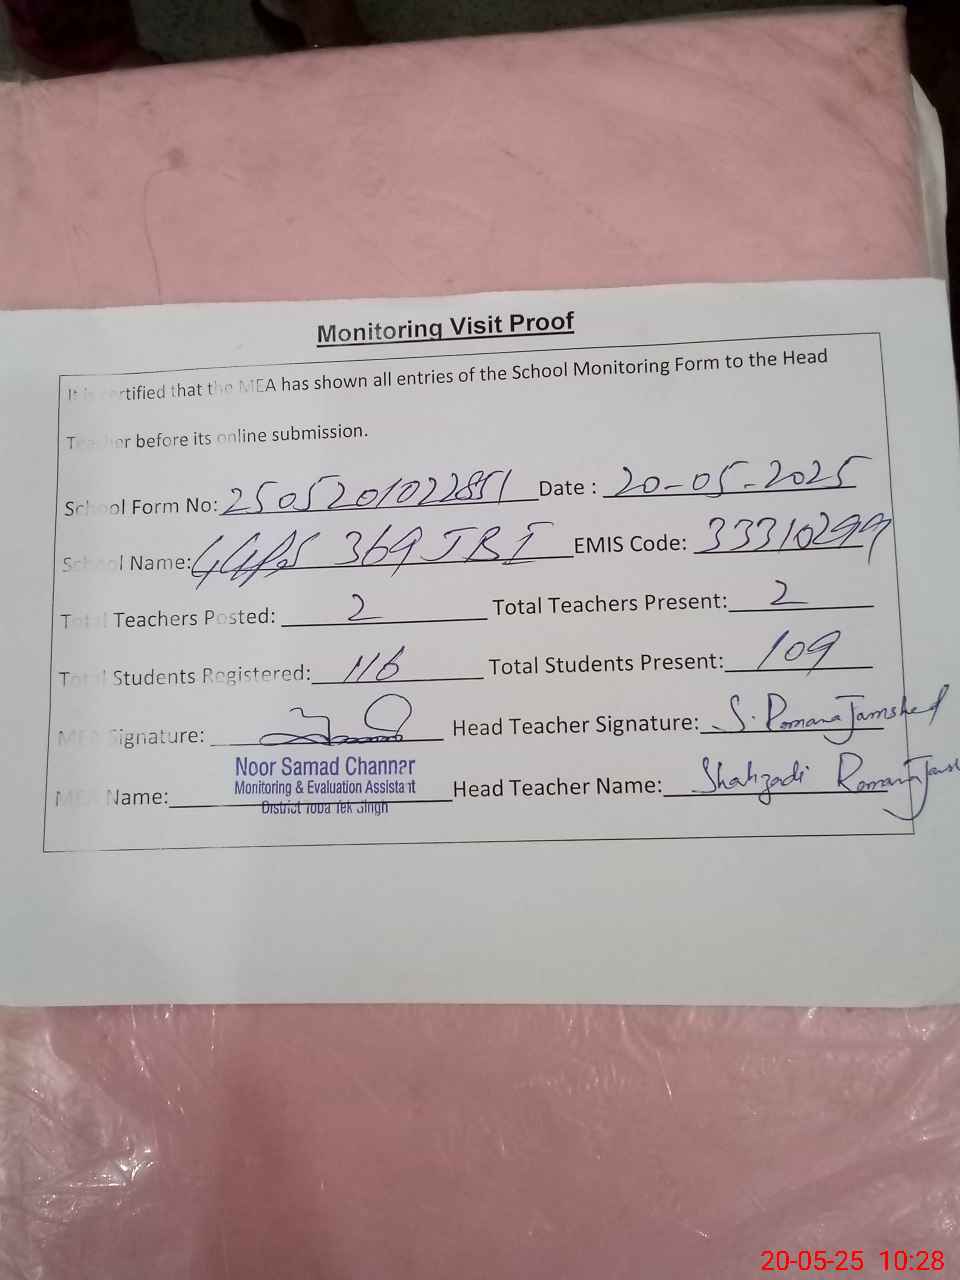 Monitoring Visit Proof
It is certified that the MEA has shown all entries of the School Monitoring Form to the Head
Teacher before its online submission.
School Form No: 2505201022851 Date : 20-05-2025
School Name: GGPS 369 JB I EMIS Code: 33310299
Total Teachers Posted: 2 Total Teachers Present: 2
Total Students Registered: 116 Total Students Present: 109
MEA Signature: Head Teacher Signature: S. Romana Jamshed
Noor Samad Channar
Monitoring & Evaluation Assistant
District Toba Tek Singh
MEA Name: Head Teacher Name: Shahzadi Romana Jamshed
20-05-25 10:28